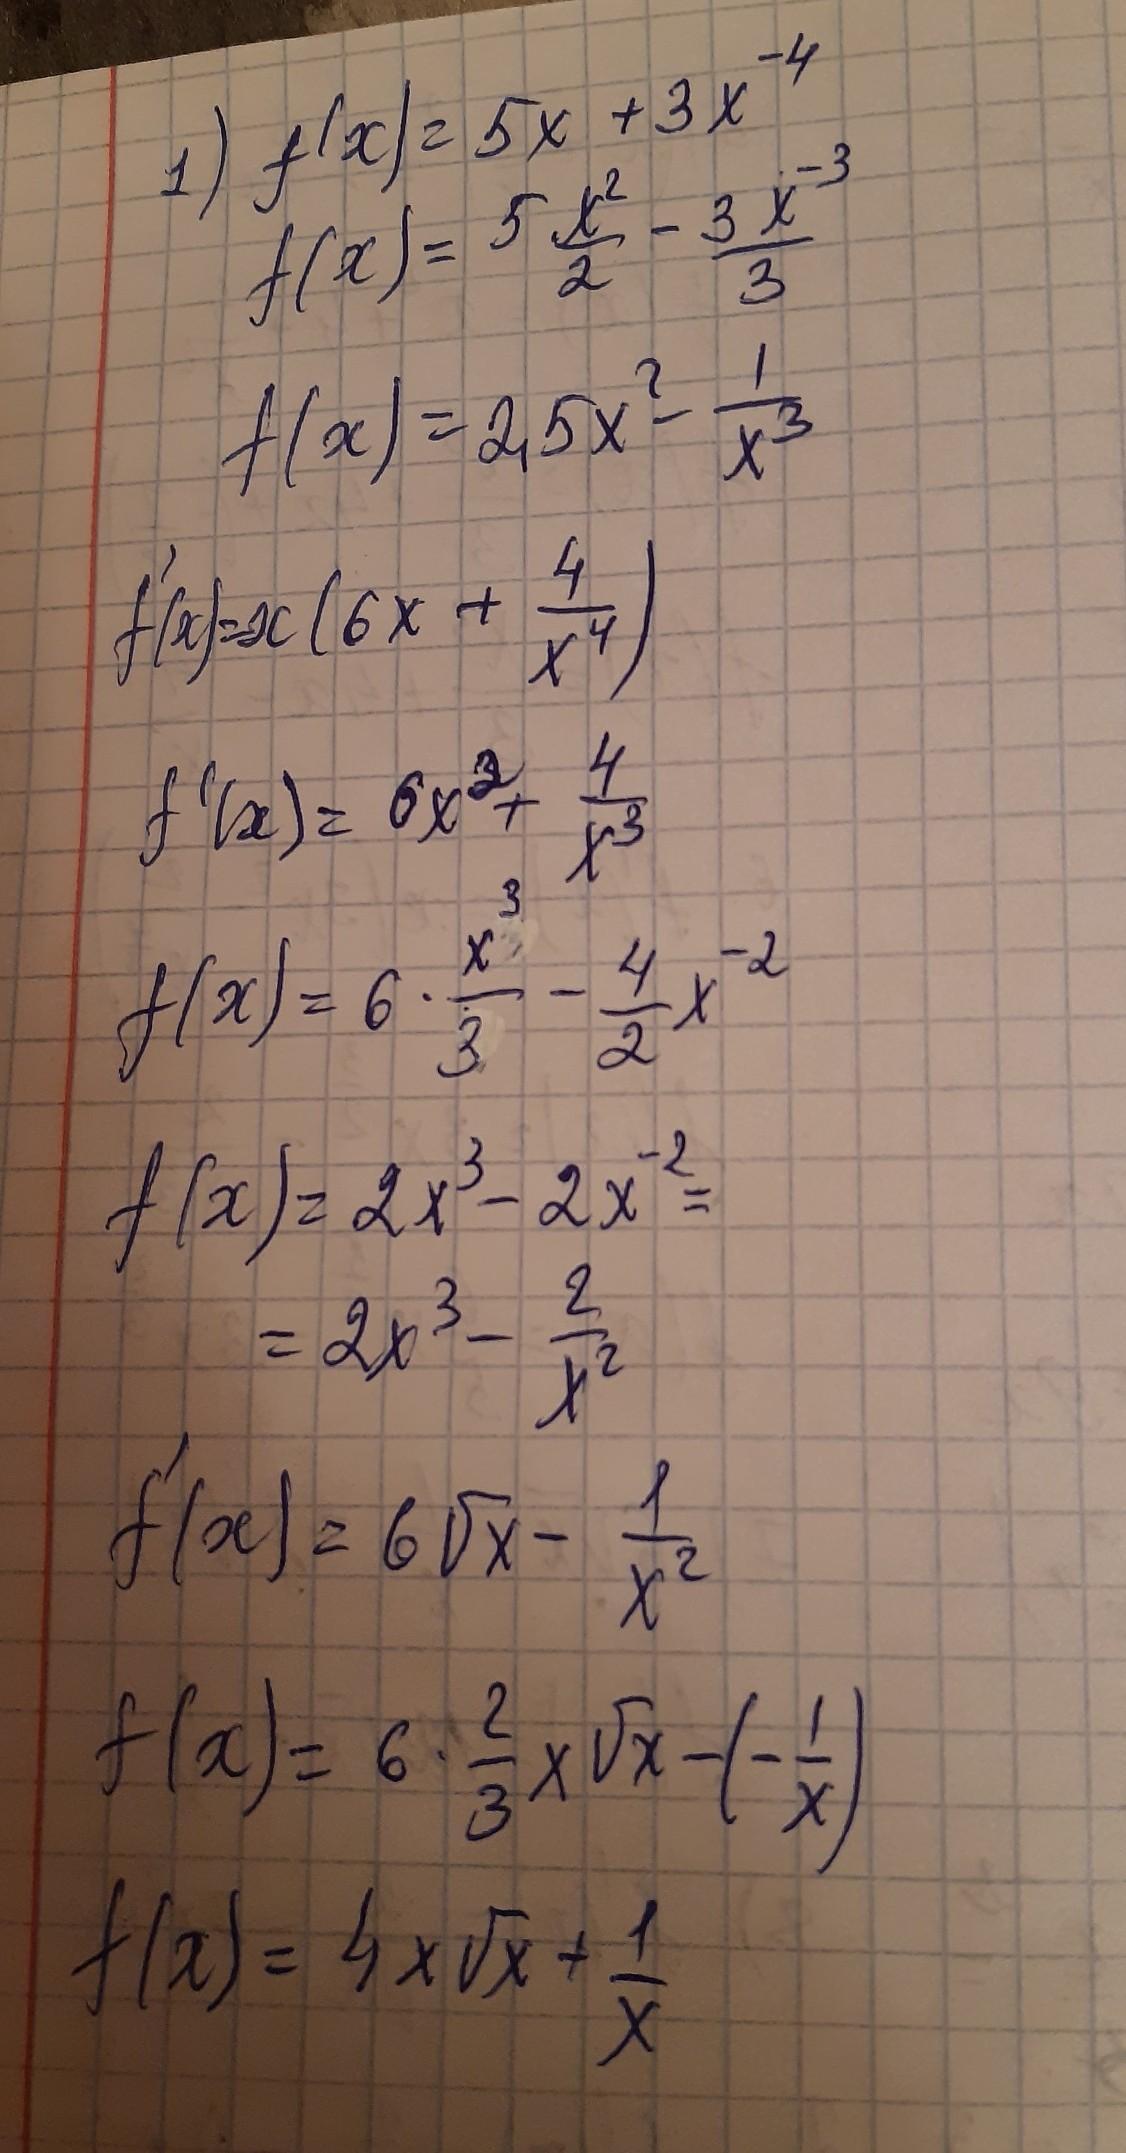 1) f'(x) = 5x + 3x⁻⁴
f(x) = 5 x²/2 - 3x⁻³/3
f(x) = 2,5x² - 1/x³
f'(x) = x(6x + 4/x⁴)
f'(x) = 6x² + 4/x³
f(x) = 6 · x³/3 - 4/2 x⁻²
f(x) = 2x³ - 2x⁻² =
= 2x³ - 2/x²
f'(x) = 6√x - 1/x²
f(x) = 6 · 2/3 x√x - (-1/x)
f(x) = 4x√x + 1/x